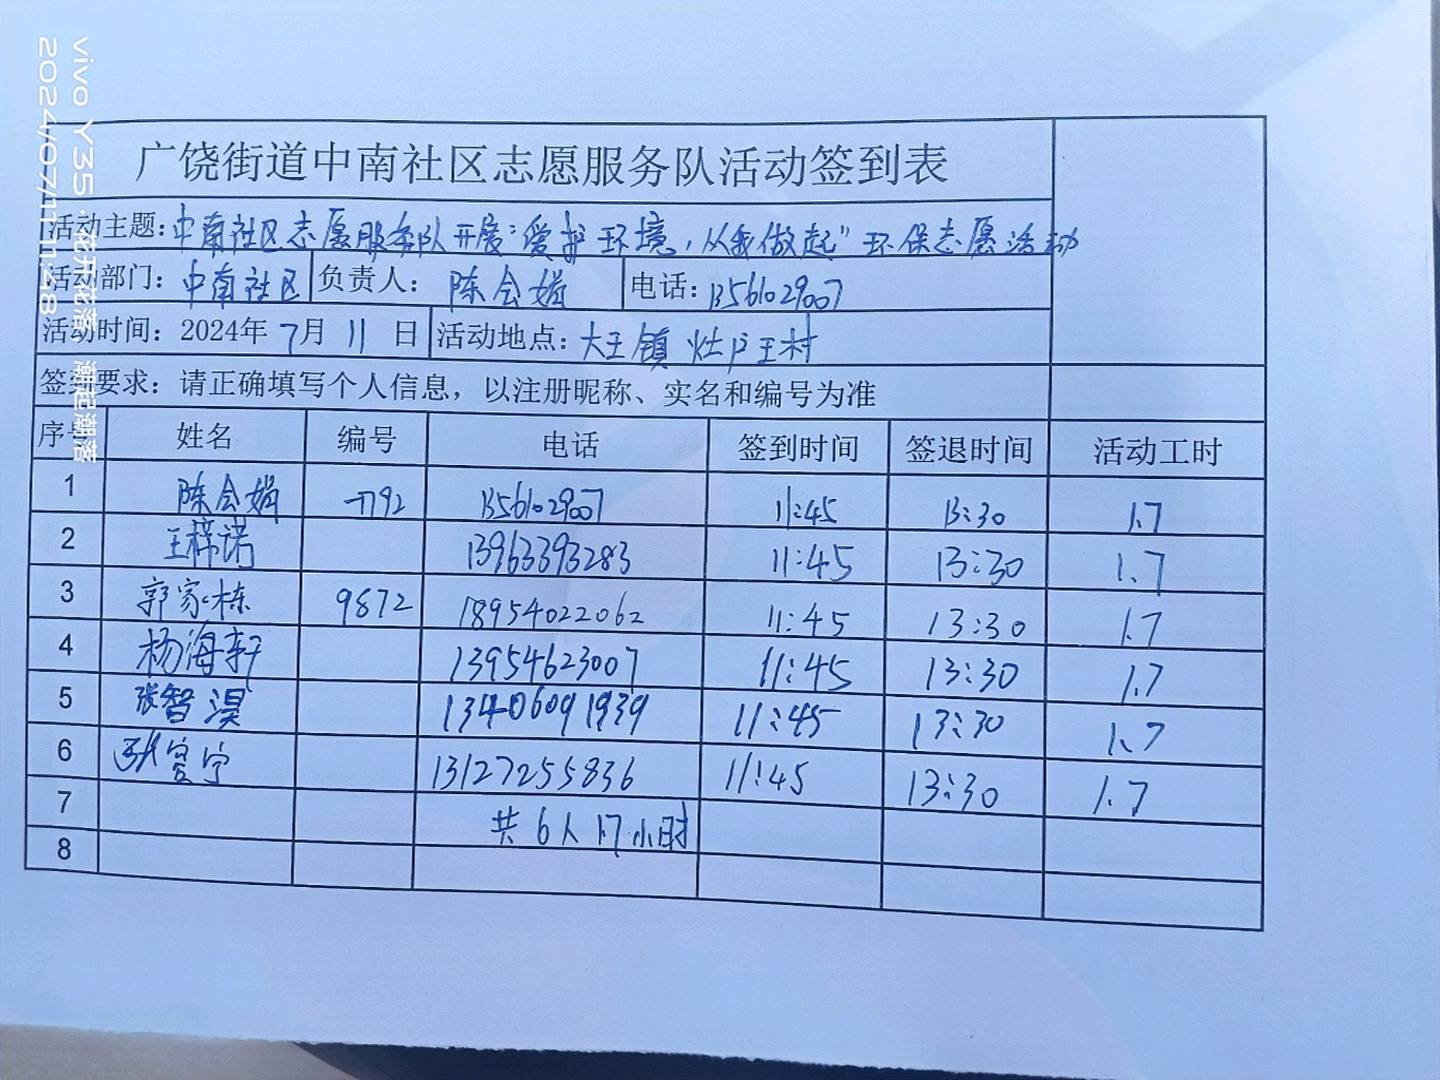 vivo Y35 · 花开花落 潮起潮落
2024/07/11 11:48
广饶街道中南社区志愿服务队活动签到表
活动主题：中南社区志愿服务队开展“爱护环境，从我做起”环保志愿活动
活动部门：中南社区 负责人： 陈会娟 电话：13561029007
活动时间：2024年 7月 11 日 活动地点：大王镇 灶户王村
签到要求：请正确填写个人信息，以注册昵称、实名和编号为准
序号 姓名 编号 电话 签到时间 签退时间 活动工时
1 陈会娟 13561029007 11:45 13:30 1.7
2 王梓诺 13963393283 11:45 13:30 1.7
3 郭家栋 9872 18954022062 11:45 13:30 1.7
4 杨海轩 13954623007 11:45 13:30 1.7
5 张智淏 13406091939 11:45 13:30 1.7
6 13127255836 11:45 13:30 1.7
7 共 6人 1.7小时
8